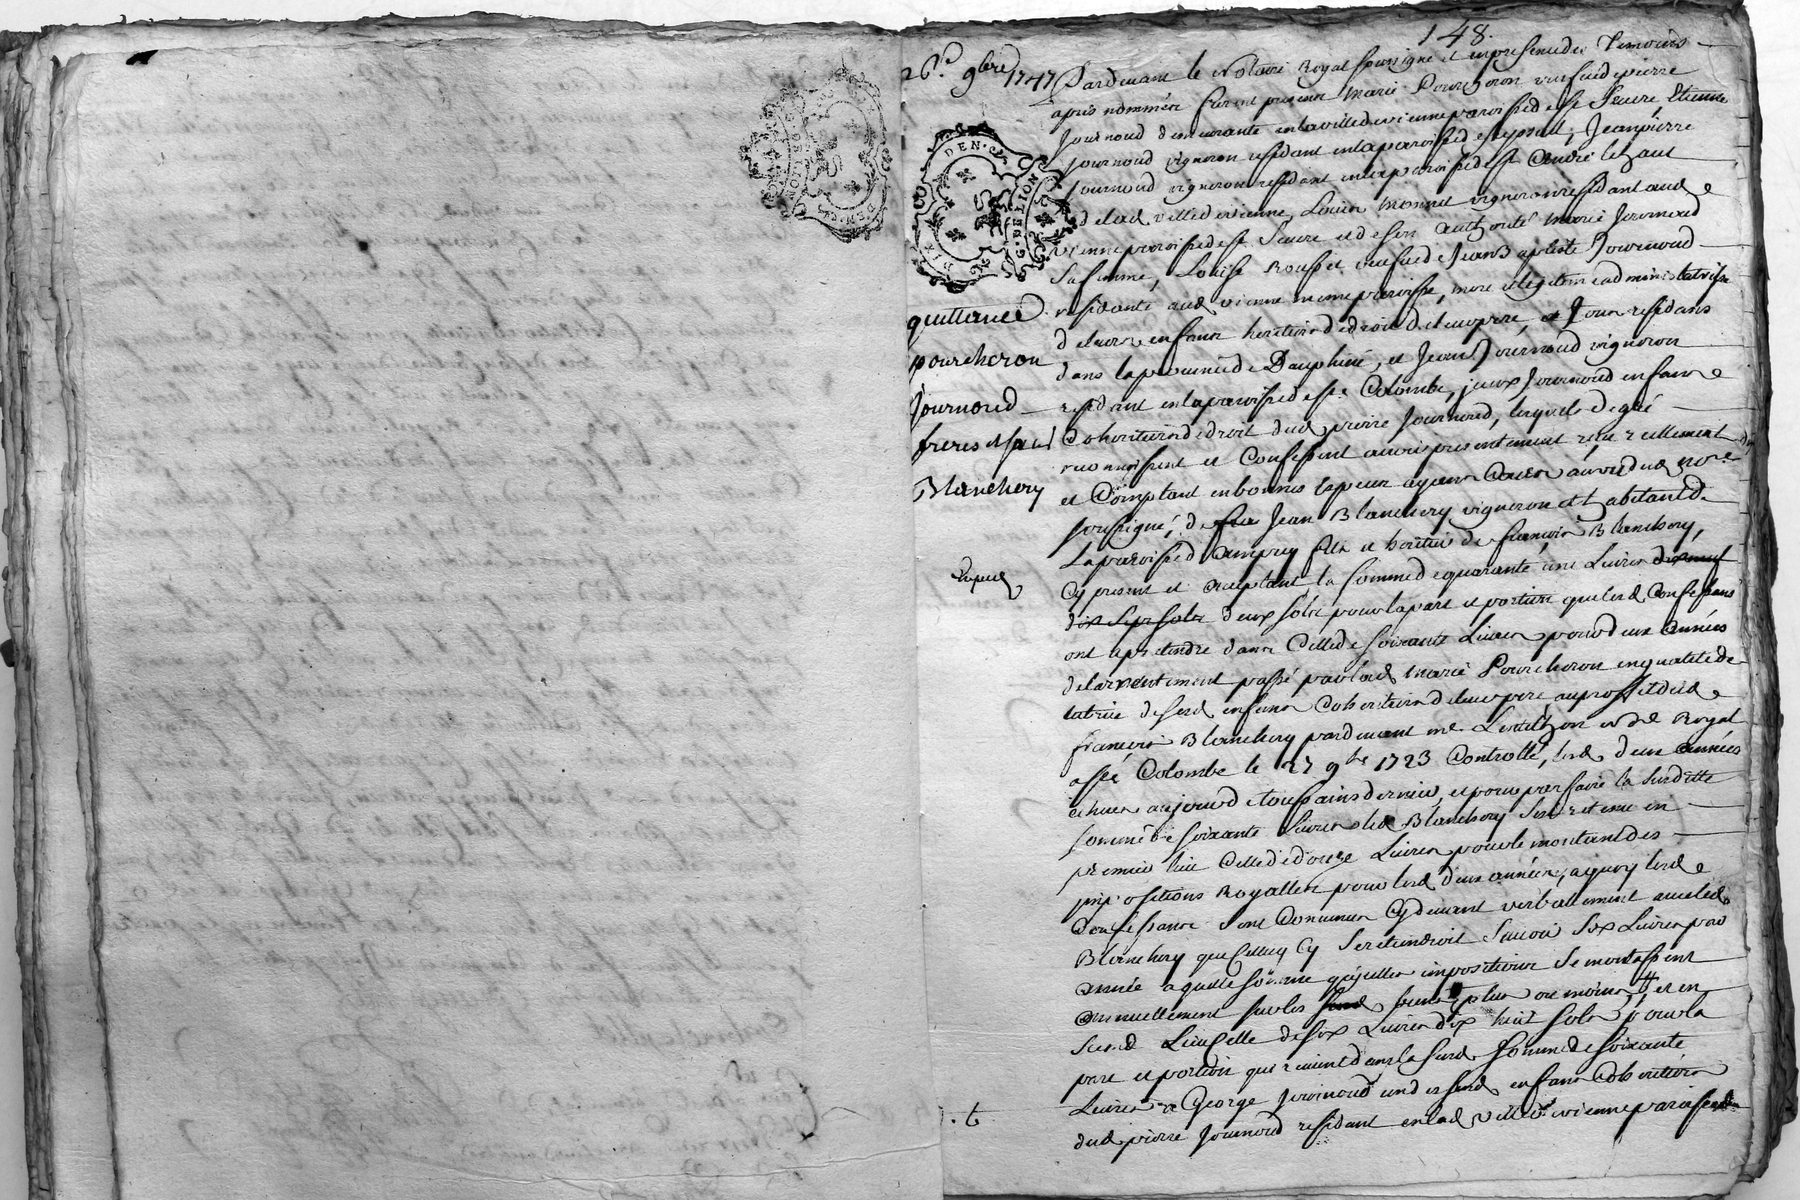 148.
26.e 9bre 1747
Pardevant le notaire Royal soussigné et en presence des temoins
après nommés furent presents Marie Pourcheron veufue de pierre
Journoud demeurante en la ville de vienne paroisse de st Seuere Etienne
Journoud vigneron residant en la paroisse de seyssuel, Jean pierre
Journoud vigneron residant en la paroisse de st André le haut
de lad ville de vienne, Louis Monnet vigneron residant aud
vienne paroisse de st Seuere et de son authorité Marie Journoud
sa femme, Louise Rousset veufue de Jean Baptiste Journoud
residante aud vienne meme paroisse, mere et legitime administratrice
de leurs enfans heritiers de droit de leur pere, et tous residans
dans la province de Dauphiné, et Jean Journoud vigneron
residant en la paroisse de ste Colombe, jceux Journoud enfans
Coheritiers de droit dud pierre Journoud, lesquels de gré
reconnoissent et Confessent auoir presentement reçu reellement
et Comptant en bonnes especes ayans Cours au veu dud no.re
soussigné, de Jean Blanchery vigneron et habitant de
la paroisse d'Ampuy fils et heritier de françois Blanchery,
Cy present et acceptant la somme de quarante une Liures dix neuf
dix sept sols deux sols pour la part et portion que lesd Confessans
ont a pretendre dans Celle de soixante Liures pour deux années
de larrentement passé par lad Marie Pourcheron en qualité de
tutrice de sesd enfans Coheritiers de leur pere au proffit dud
françois Blanchery pardevant me no.re Royal
a ste Colombe le 27 9bre 1723 Controllé, lesd deux années
echues au jour de toussains dernier, et pour parfaire la susditte
somme de soixante Liures led Blanchery s'est retenu en
premier lieu Celle de douze Liures pour le montant des
jmpositions Royalles pour lesd deux années, ayant lesd
Confessans sont Conuenus Cydeuant verbalement auec led
Blanchery que Celluy Cy se retiendroit Sauoir Six Liures par
année a quelle somme que jcelles impositions se montassent
annuellement sur les fonds plus ou moins, et en
second Lieu Celle de six Liures dix huit sols pour la
part et portion qui reuient dans la susd somme de soixante
Liures a George Journoud un desd enfans Coheritiers
dud pierre Journoud residant en lad ville de vienne paroisse
quittance
pourcheron
Journoud
freres
Blanchery
DEN.
G. DE LION